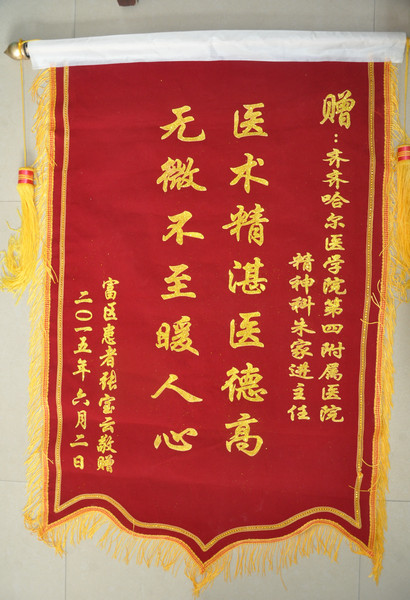 赠：齐齐哈尔医学院第四附属医院
精神科朱家进主任
医术精湛医德高
无微不至暖人心
富区患者张宝云敬赠
二〇一五年六月二日